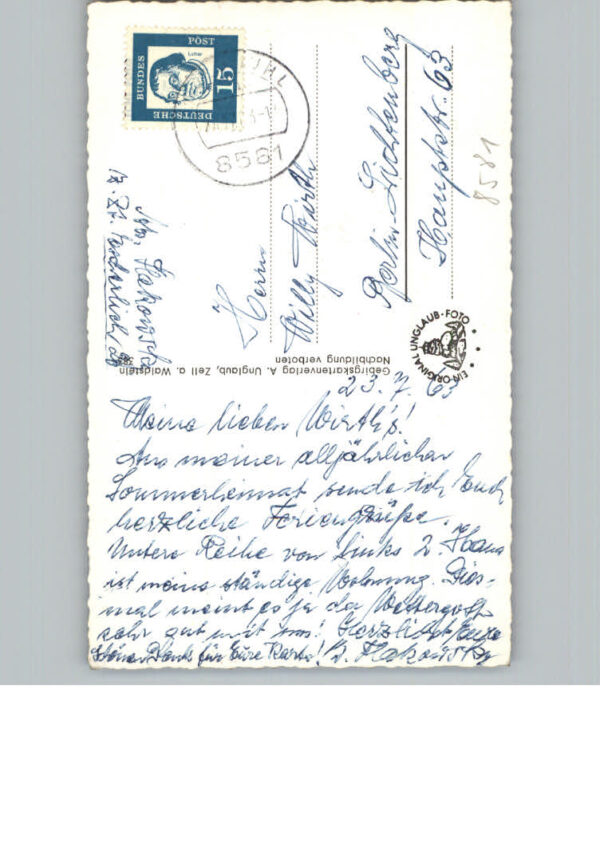 DEUTSCHE
BUNDES
POST
15
8581
Herrn
Willy Wirth
Berlin-Lichtenberg
Hauptstr. 63
8581
Gebirgskartenverlag A. Unglaub, Zell a. Waldstein
Nachbildung verboten
EIN ORIGINAL UNGLAUB-FOTO
23.7.63
Meine lieben Wirth's!
Aus meiner alljährlichen
Sommerheimat sende ich Euch
herzliche Feriengrüße.
Untere Reihe von links 2. Haus
ist meine ständige Wohnung. Dies-
mal meint es ja der Wettergott
sehr gut mit uns! Herzlichst Eure
Schönen Dank für Eure Karte!